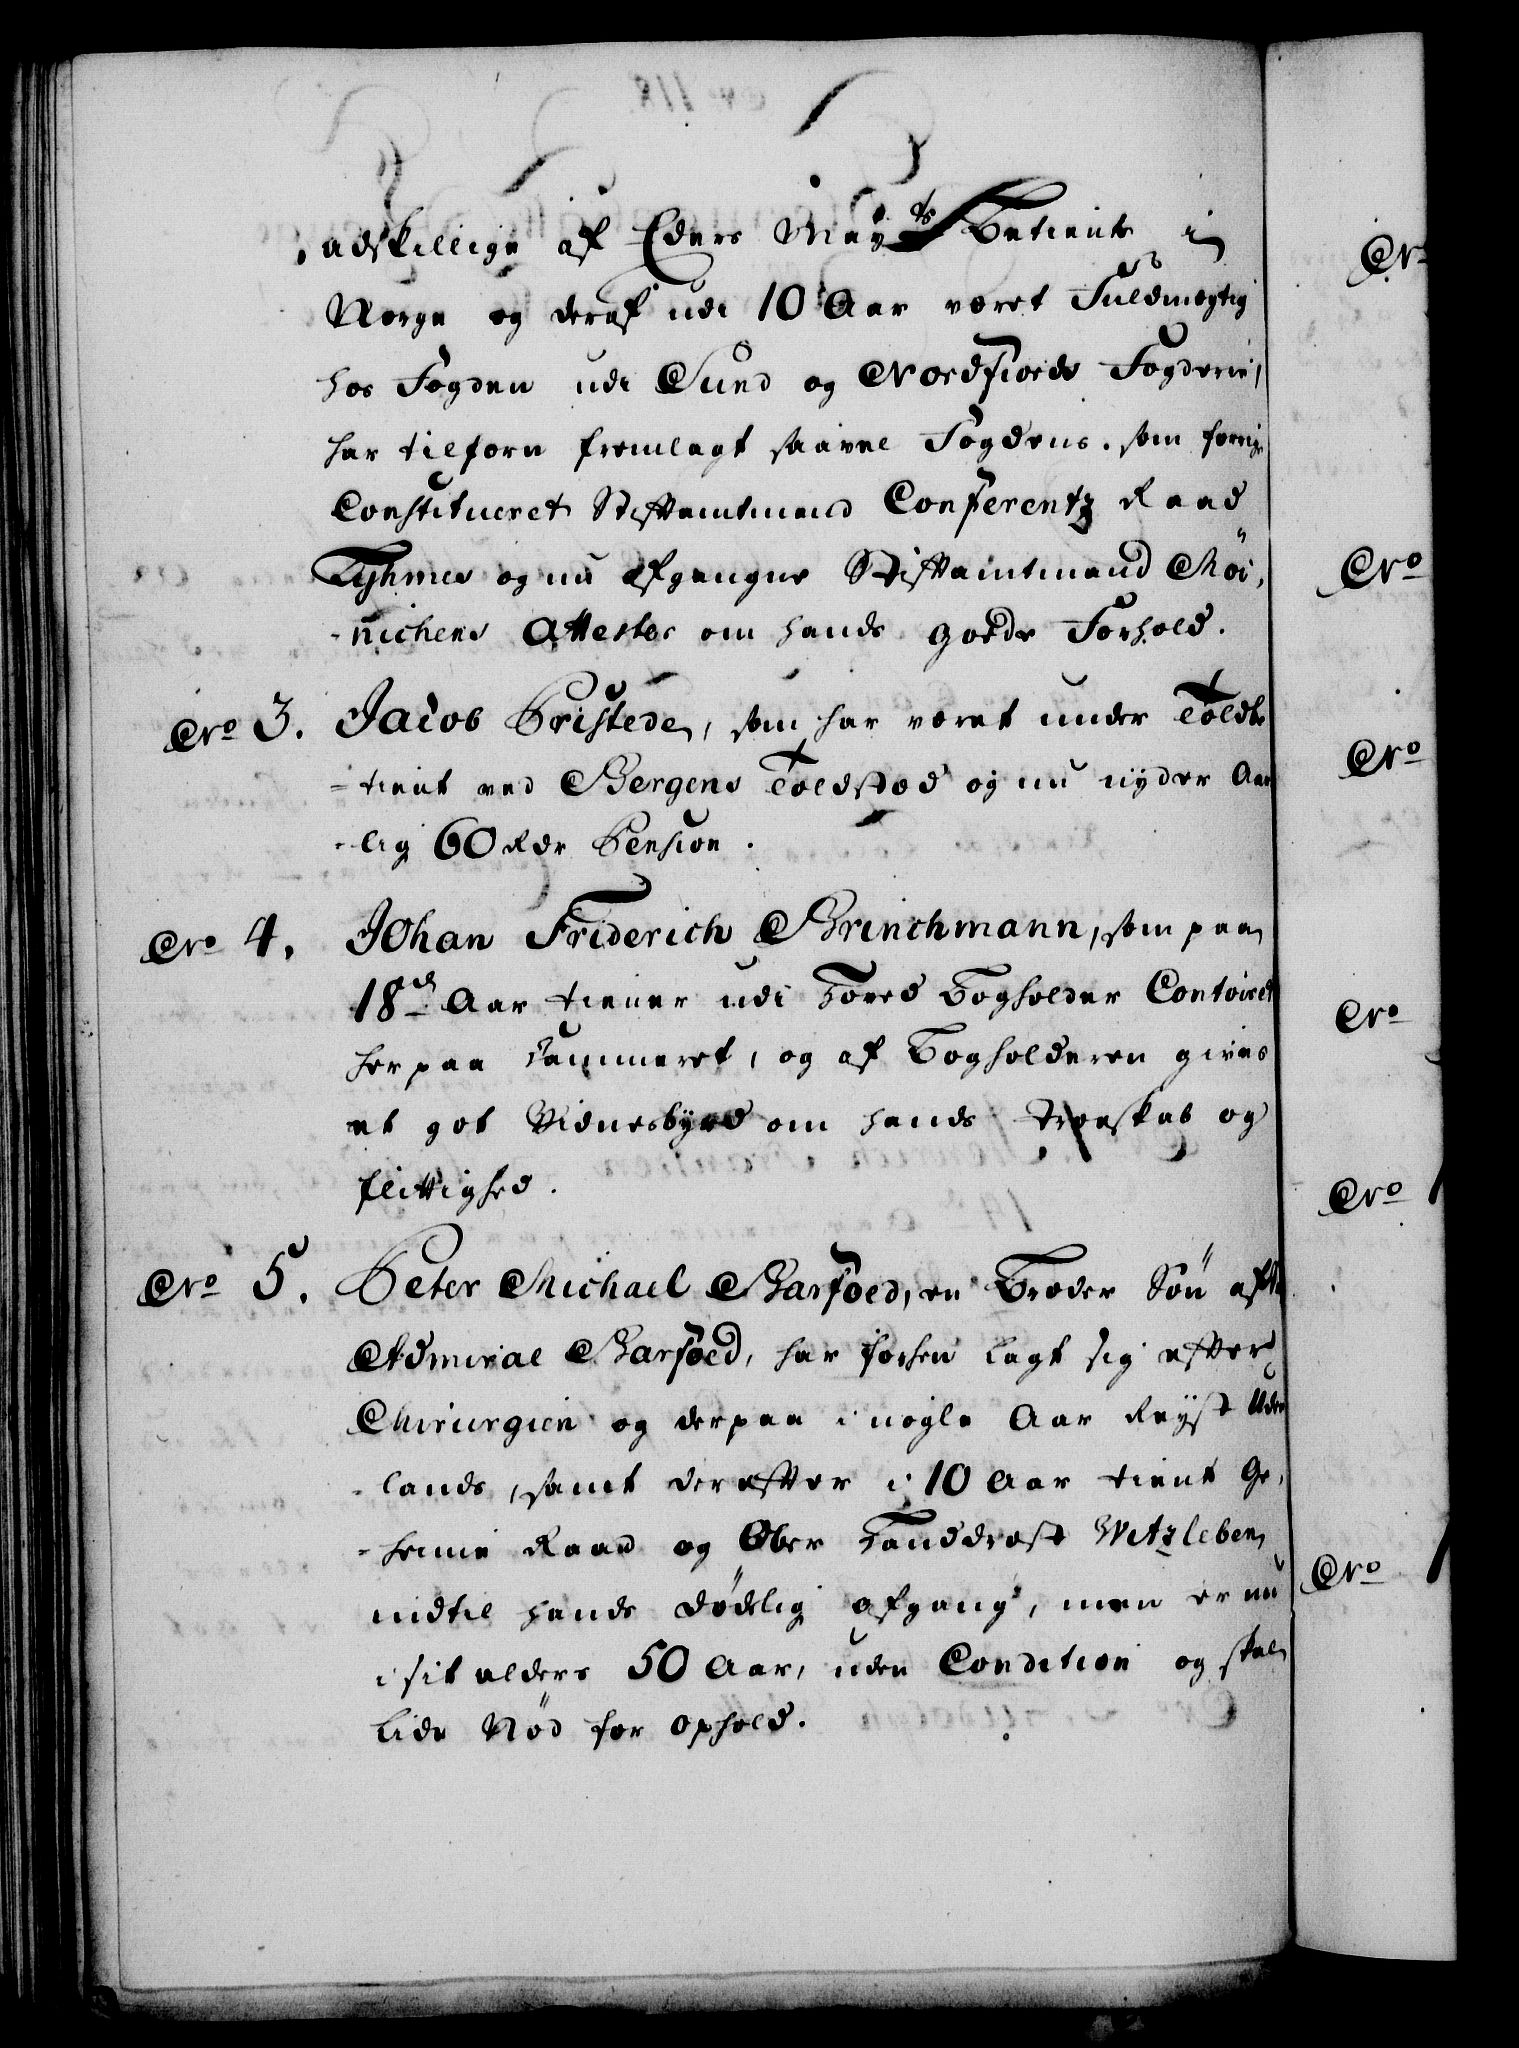 adskillige af Eders May.ts Betiente i
Norge og deraf udi 10 Aar været Fuldmægtig
hos Fogden udi Sund og Nordfiords Fogderie,
har tilforn fremlagt saavel Fogdens. som forrige
Constitueret Stiftamtmand Conferentz Raad
Tyhmes og nu afgangne Stiftamtmand Möi,
-nichens Attester om hands goede Forhold.
Nro 3. Jacob Bristede, som har været under Toldbe
-tient ved Bergens Toldsted og nu nyder Aar
-lig 60 Rdr Pension.
Nro 4. Johan Friderich Brinchmann, som paa
18de Aar tiener udi Hoved Bogholder Contoiret
her paa Cammeret, og af Bogholderen gives
et got Vidnesbyrd om hands Troeskab og
flittighed.
Nro 5. Peter Michael Barfoed, en Broder Sön af
Admiral Barfoed, har forhen lagt sig efter
Chirurgien og derpaa i nogle Aar Reyst Uden
-lands, samt derefter i 10 Aar tient Ge,
-heime Raad og Ober Landdrost Witzleben
indtil hands dödelig afgang, men er nu
i sit alders 50 Aar, uden Condition og skal
lide Nöd for ophold.
Nr
Nro
Nro
Nro
Nro
Nro